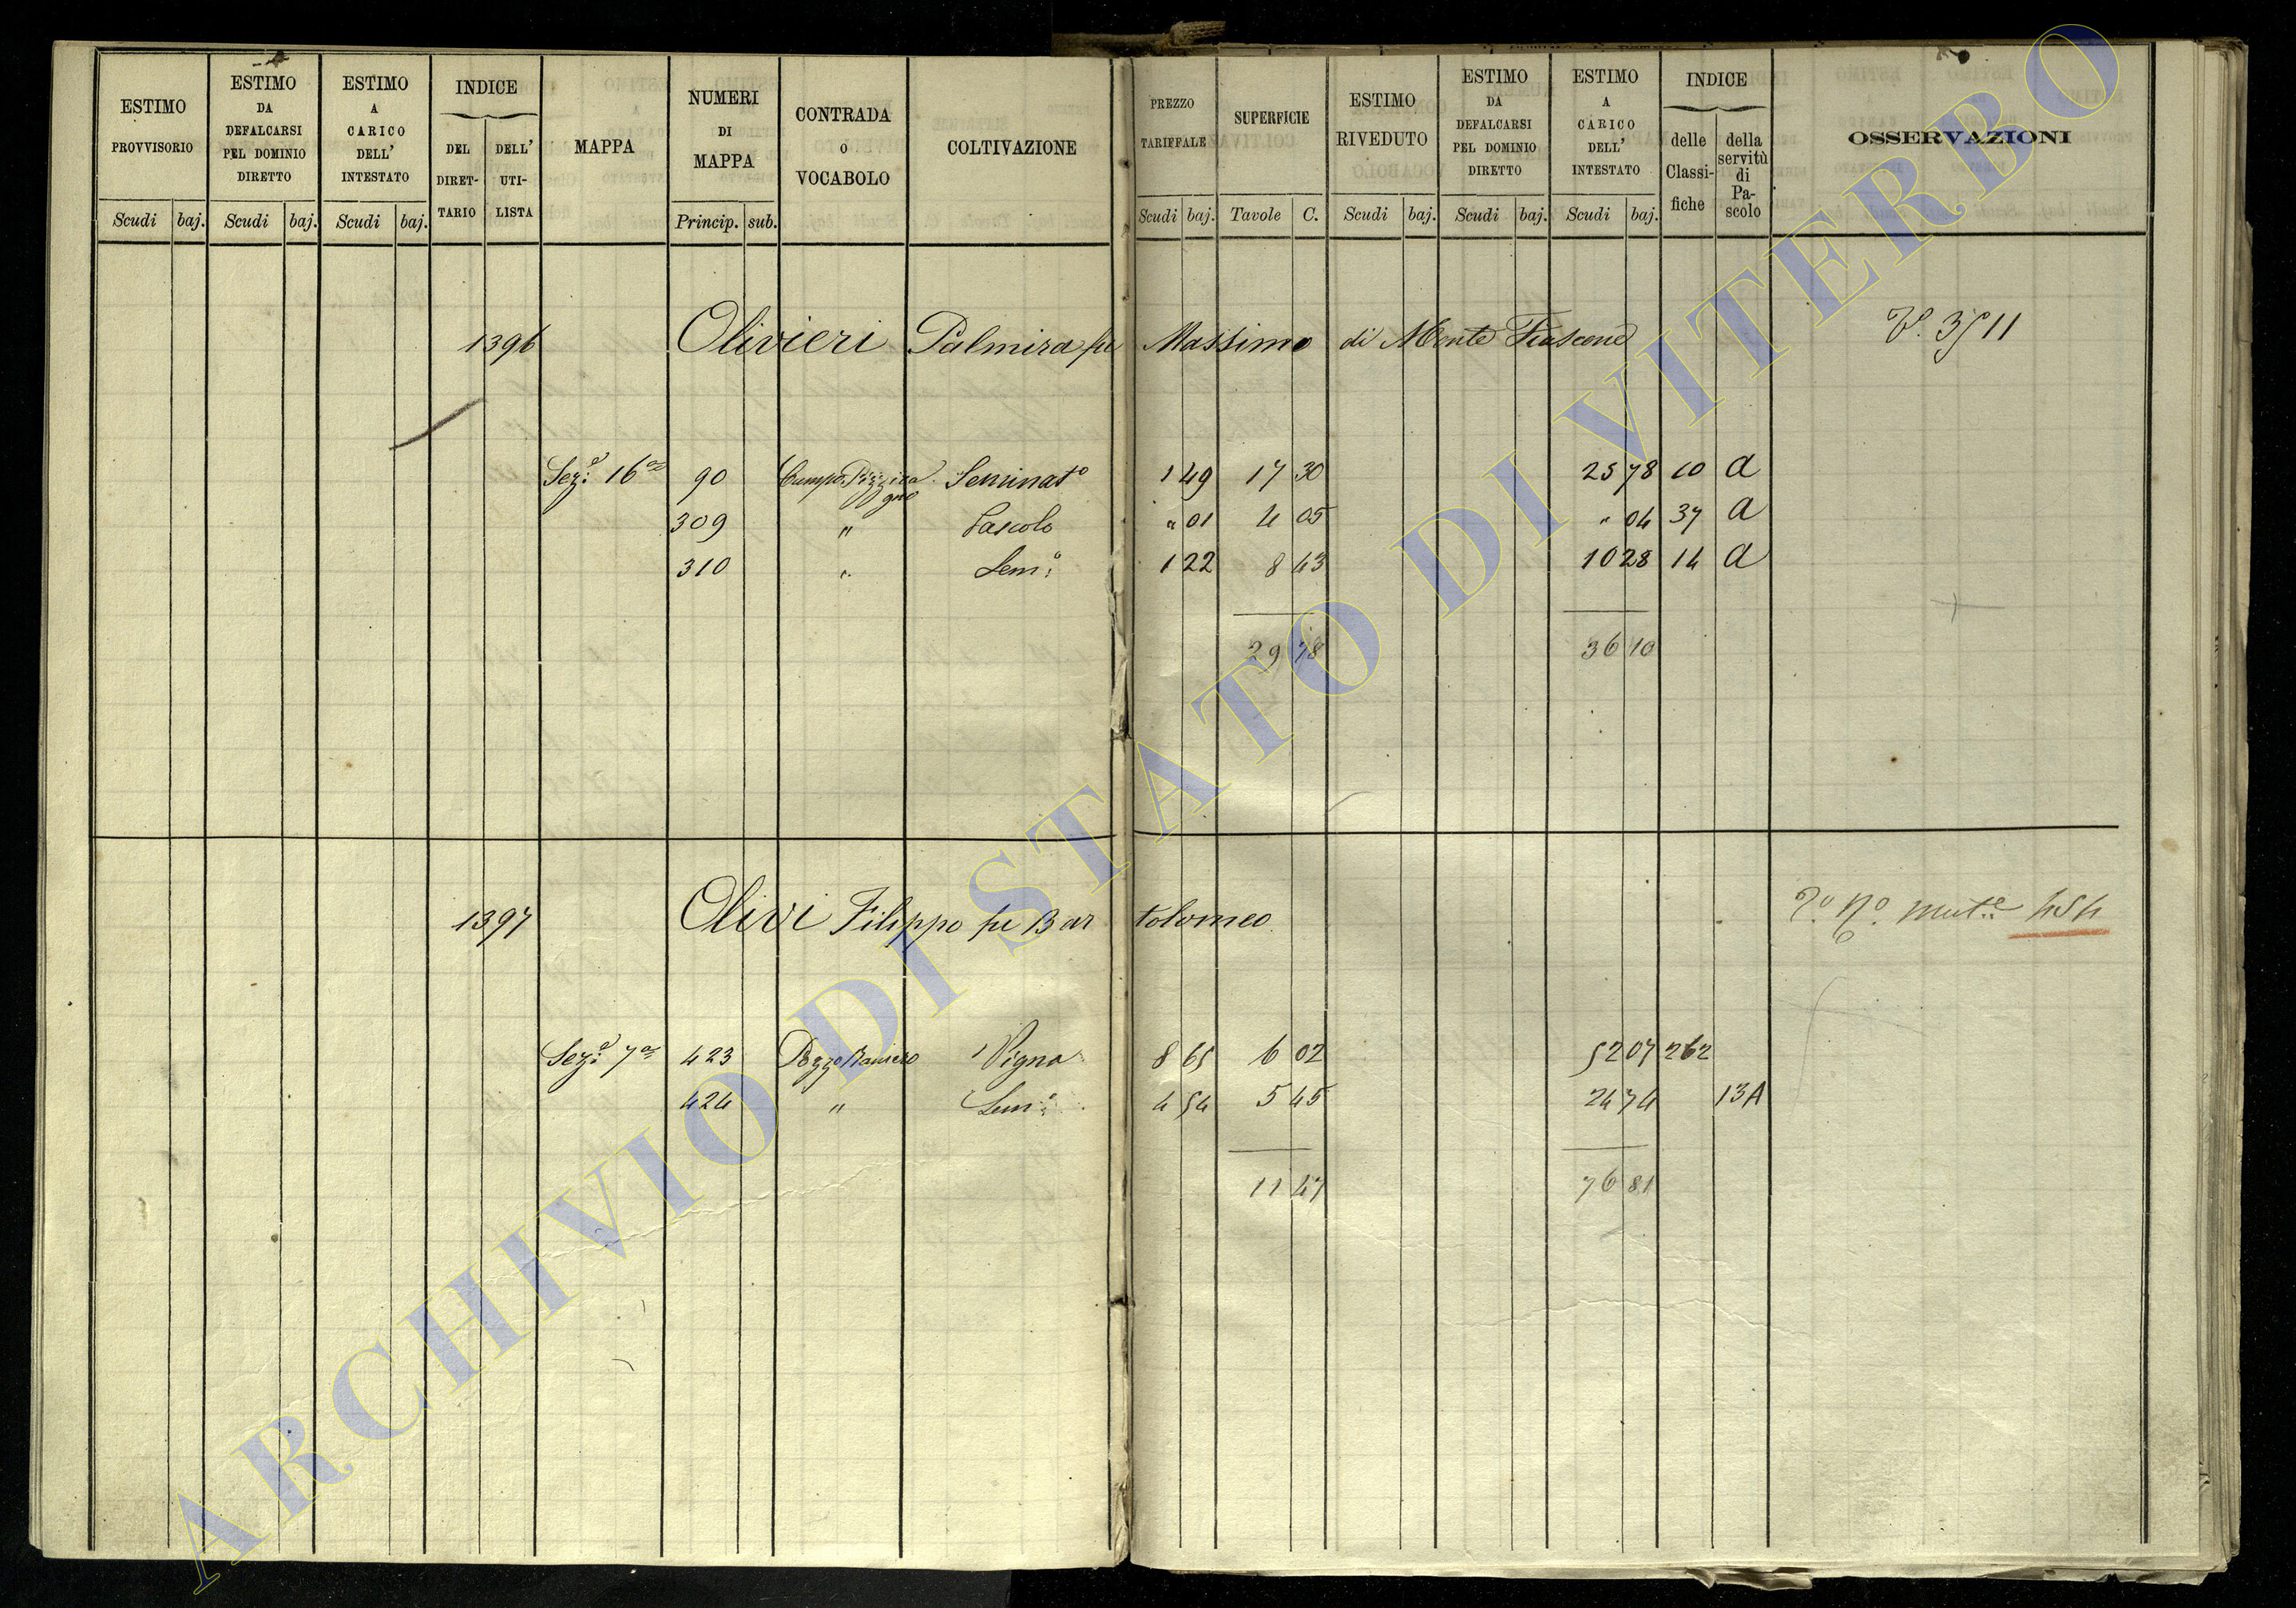 ESTIMO PROVVISORIO
Scudi baj.
ESTIMO DA DEFALCARSI PEL DOMINIO DIRETTO
Scudi baj.
ESTIMO A CARICO DELL' INTESTATO
Scudi baj.
INDICE
DEL DIRET-TARIO
DELL' UTI-LISTA
MAPPA
NUMERI DI MAPPA
Princip. sub.
CONTRADA O VOCABOLO
COLTIVAZIONE
PREZZO TARIFFALE
Scudi baj.
SUPERFICIE
Tavole C.
ESTIMO RIVEDUTO
Scudi baj.
ESTIMO DA DEFALCARSI PEL DOMINIO DIRETTO
Scudi baj.
ESTIMO A CARICO DELL' INTESTATO
Scudi baj.
INDICE
delle Classi-fiche
della servitù di Pa-scolo
OSSERVAZIONI
1396 Olivieri Palmira fu Massimo di Monte Fiascone 3511
Sez:e 16a 90 Campo Pizzica gne Seminato 1 49 17 30 25 78 10 a
309 " Pascolo " 01 4 05 " 04 37 a
310 " Sem:o 1 22 8 43 10 28 14 a
29 78 36 10
1397 Olivi Filippo fu Bartolomeo 454
Sez:e 7a 423 Pozzo Raniero Vigna 8 65 6 02 52 07 262
424 " Sem:o 4 54 5 45 24 74 13A
11 47 76 81
ARCHIVIO DI STATO DI VITERBO